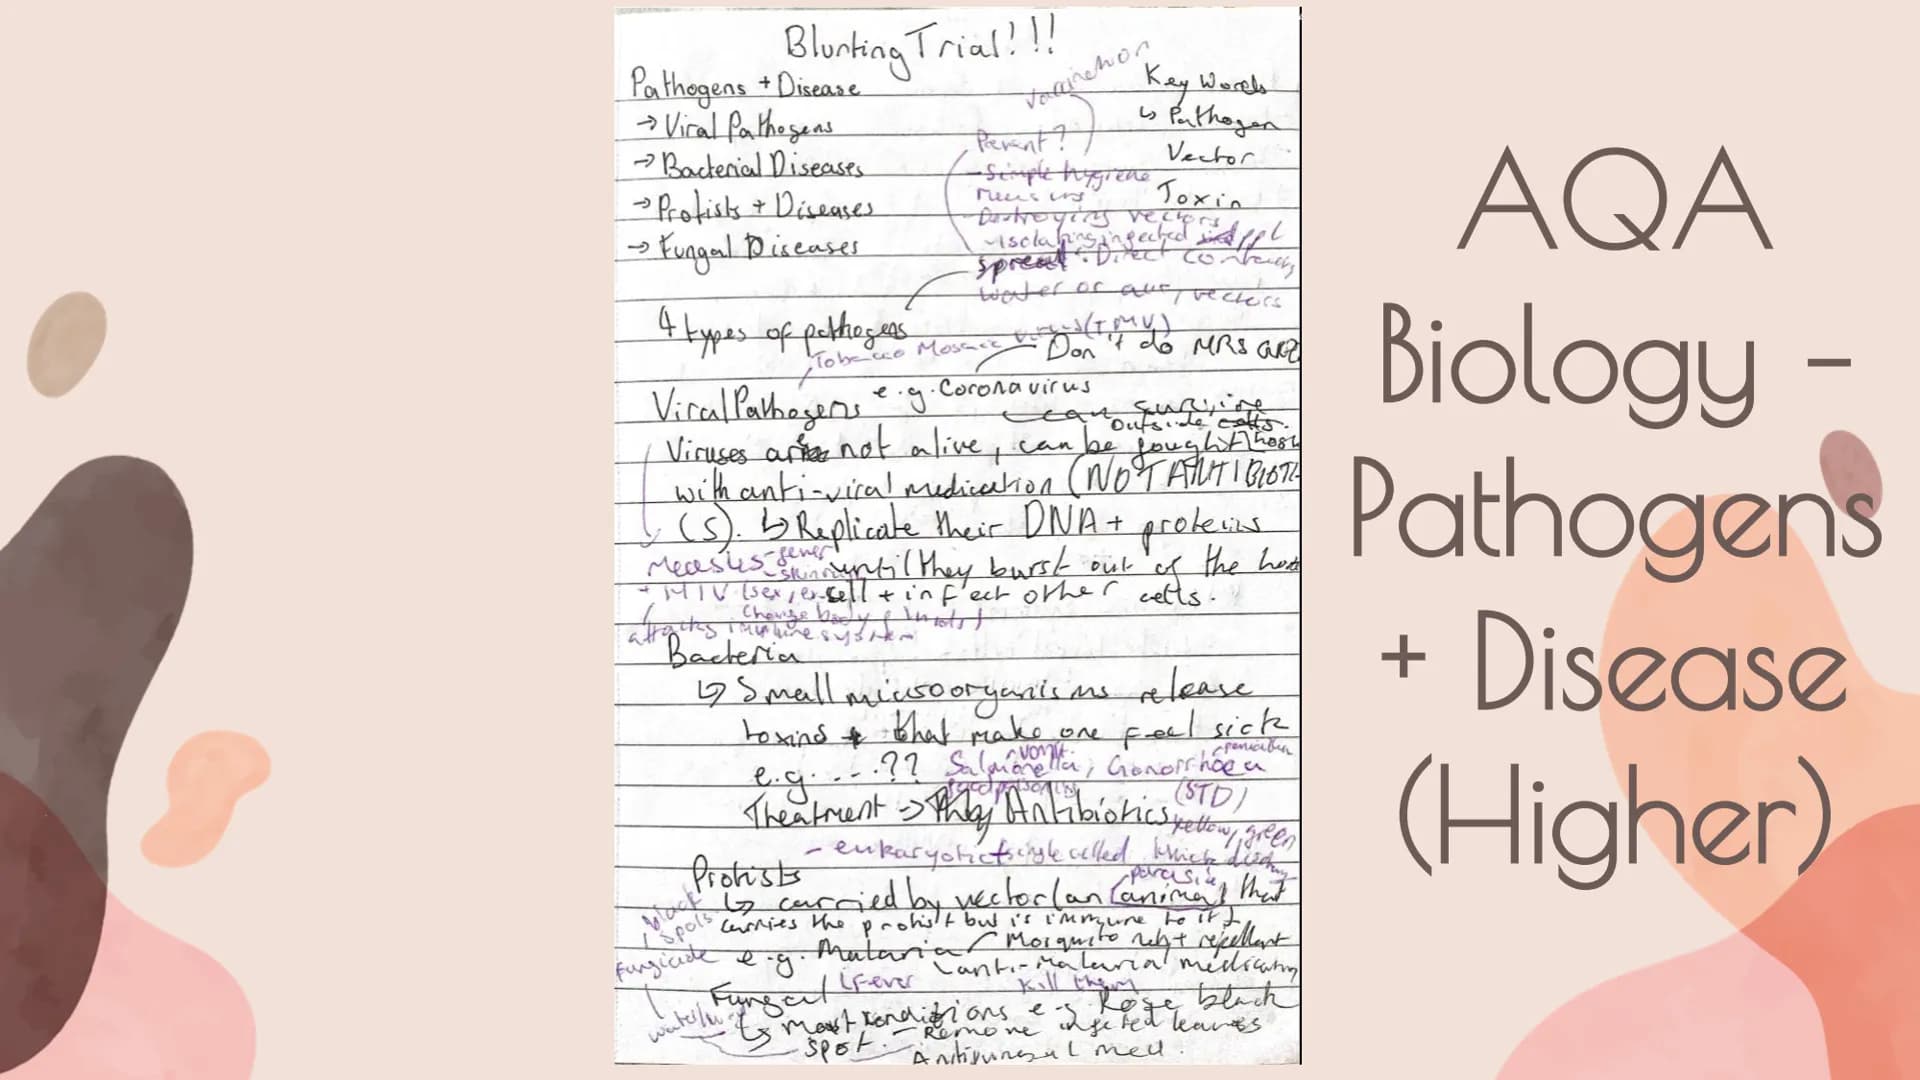 Blurting Trial!!!
Pathogens + Disease
→ Viral Pathogens
→ Bacterial Diseases
→ Protists + Diseases
→ Fungal Diseases
vaccination
Key Words
↳ Pathogen
Vector
Toxin
Prevent?
- Simple hygiene
- Destroying vectors
- Isolating infected ppl
spread: Direct contact,
water or air, vectors
4 types of pathogens
Tobacco Mosaic virus (TMV)
Don't do MRS GREN
Viral Pathogens e.g. Coronavirus
can survive
outside cells.
Viruses are not alive, can be fought host
with anti-viral medication (NOT ANTIBIOTI
CS). ↳ Replicate their DNA + proteins
until they burst out of the host
cell + infect other cells.
Measles - fever
- skin rash
+ HIV (sex, exchange body fluids)
attacks immune system
Bacteria
↳ Small microorganisms release
toxins + that make one feel sick
e.g. ...?? Salmonella, Gonorrhoea
vomit
food poisoning
(STD)
Treatment → Antibiotics
yellow, green
thick
- eukaryotic + single celled
Protists
parasite
↳ carried by vector (an animal that
carries the protist but is immune to it)
e.g. Malaria - Mosquito net + repellant
anti-malarial medication
Fever
Kill them
black
spots
Fungicide
Fungal
↳ most conditions e.g. Rose black
spot. - Remove infected leaves
Antifungal med.
AQA
Biology -
Pathogens
+ Disease
(Higher)